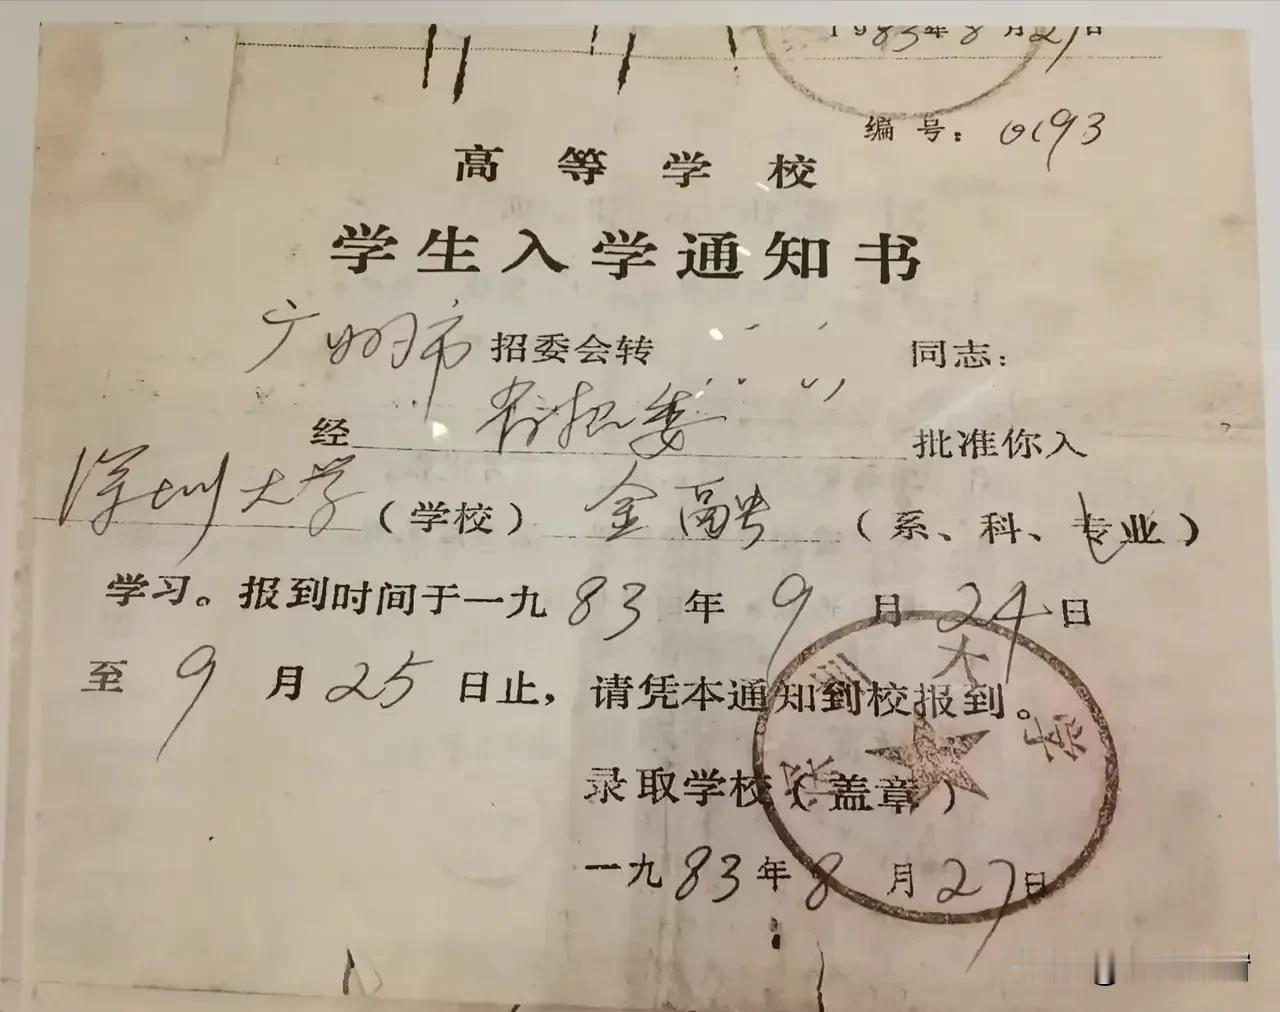 1983年8月27日
编号：0193
高等学校
学生入学通知书
广州市招委会转 同志：
经省招委批准你入
深圳大学（学校）金融（系、科、专业）
学习。报到时间于一九83年9月24日
至9月25日止，请凭本通知到校报到。
录取学校（盖章）
深圳大学
一九83年8月27日